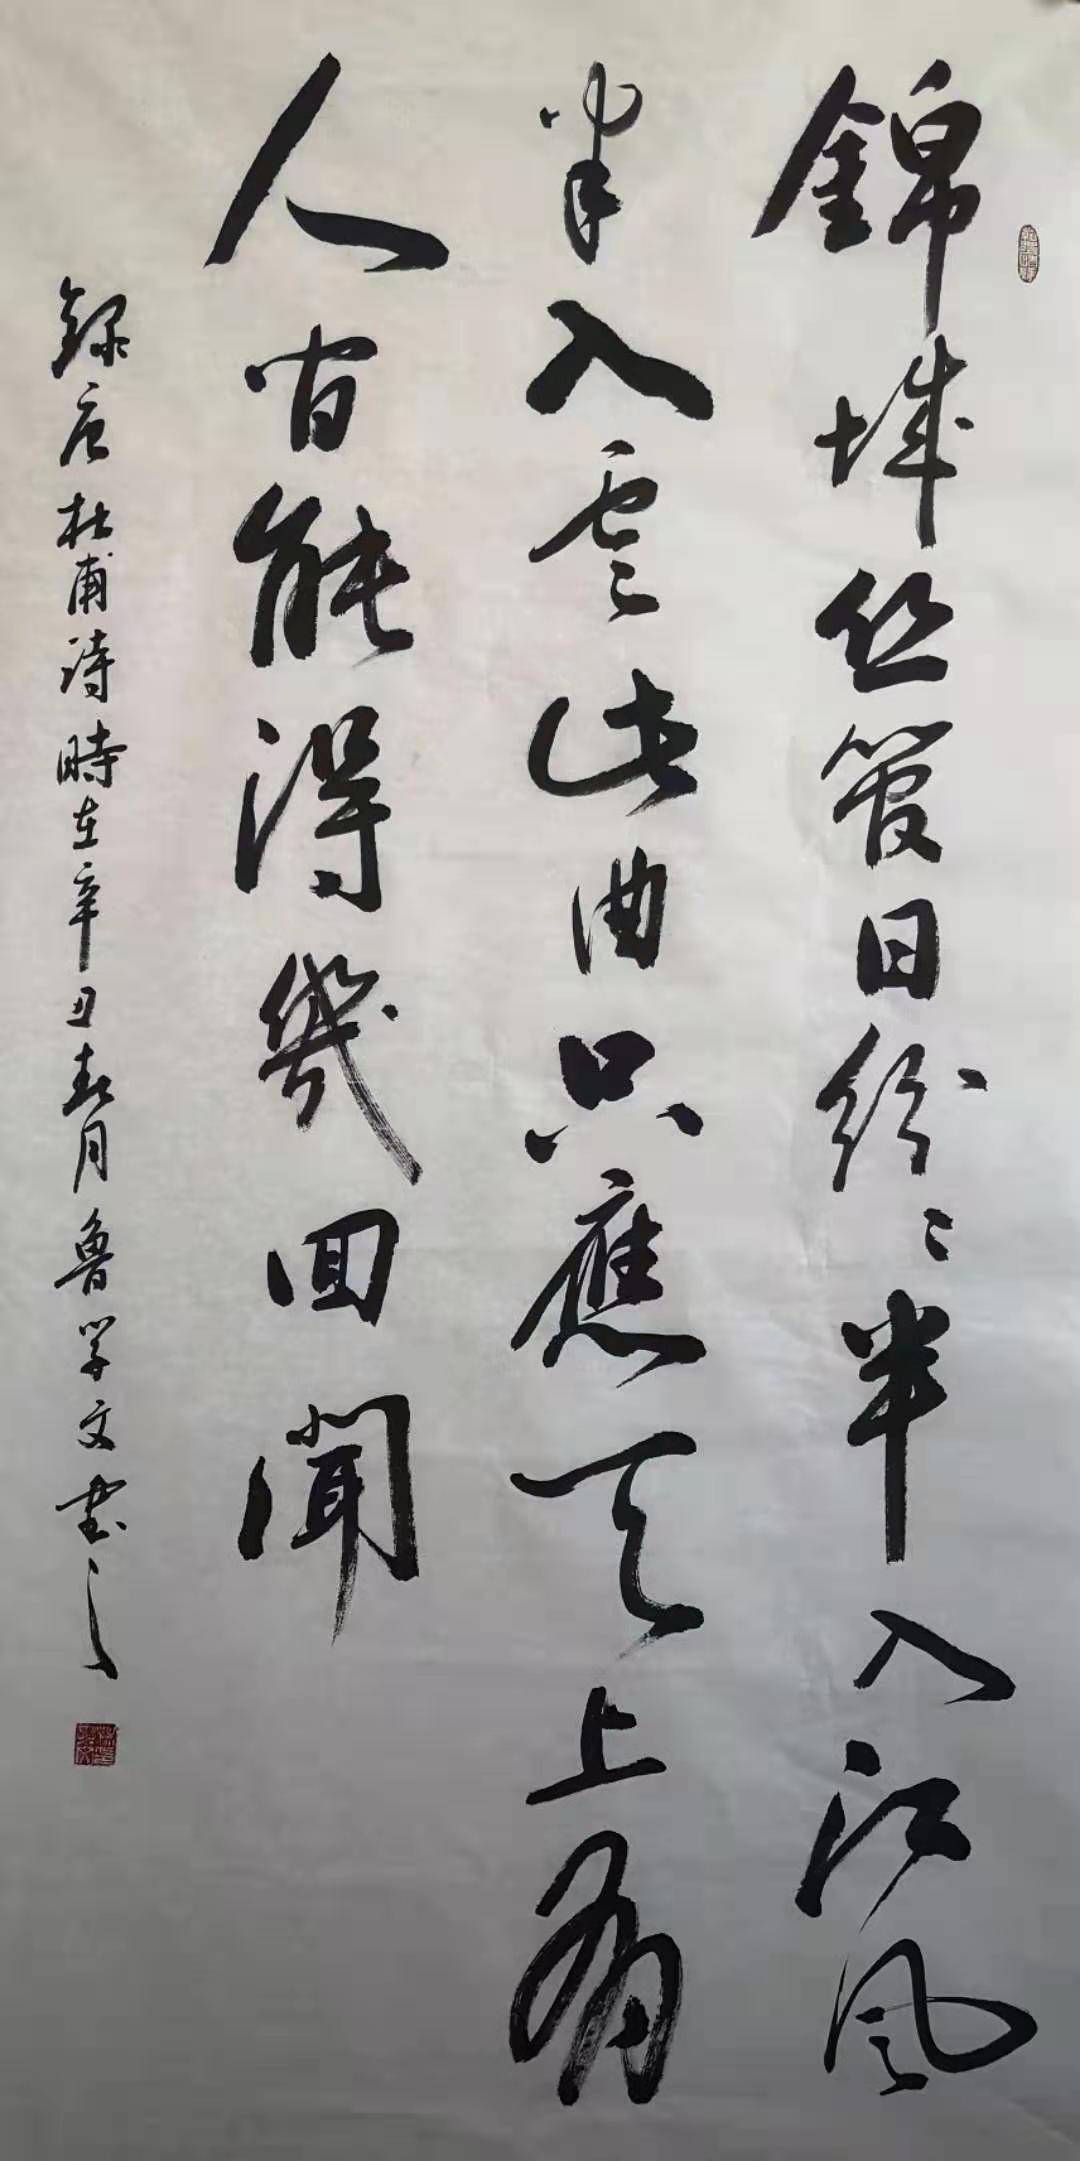 錦城丝管日紛〻半入江風
半入雲此曲只應天上有
人间能得幾回聞
録唐杜甫詩時在辛丑春月魯学文书